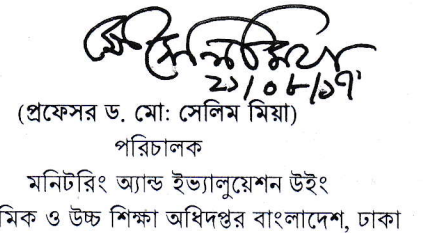 মোঃ সেলিম মিয়া
২১/০৮/১৭
(প্রফেসর ড. মো: সেলিম মিয়া)
পরিচালক
মনিটরিং অ্যান্ড ইভ্যালুয়েশন উইং
মিক ও উচ্চ শিক্ষা অধিদপ্তর বাংলাদেশ, ঢাকা